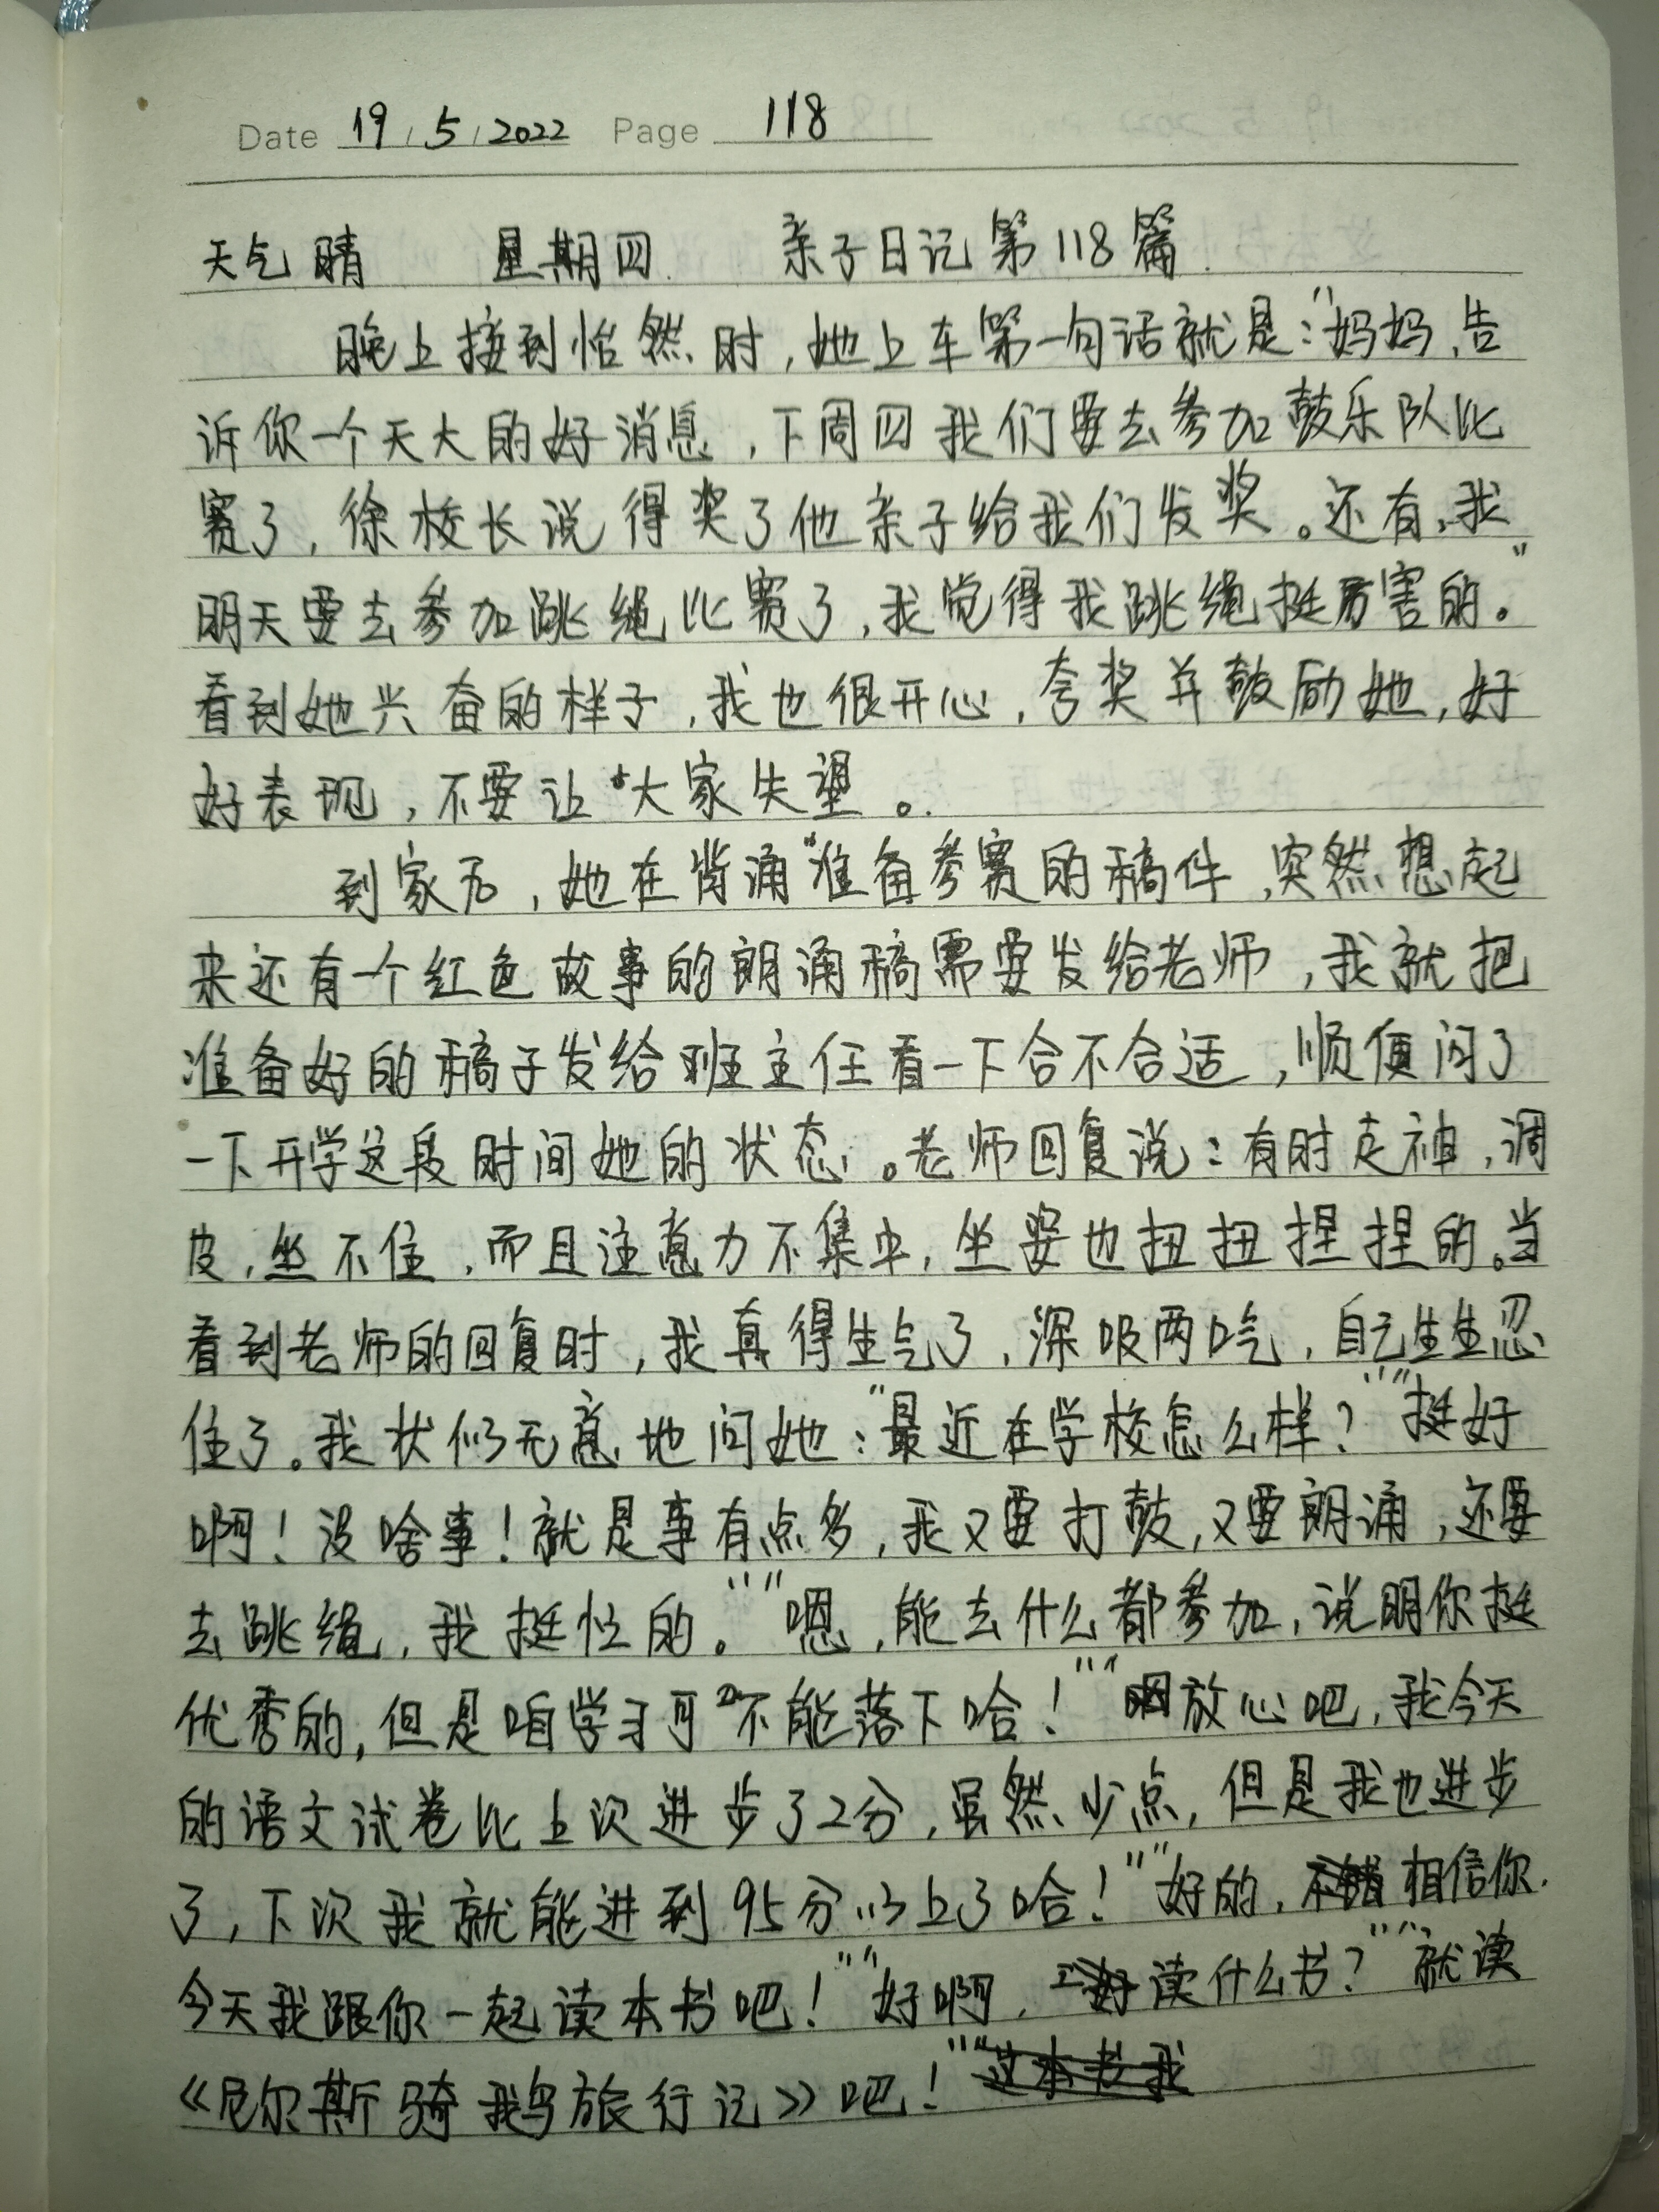 Date 19 / 5 / 2022 Page 118
天气晴 星期四. 亲子日记第118篇.
晚上接到怡然时,她上车第一句话就是:“妈妈,告
诉你一个天大的好消息,下周四我们要去参加鼓乐队比
赛了,徐校长说得奖了他亲子给我们发奖。还有,我
明天要去参加跳绳比赛了,我觉得我跳绳挺厉害的。”
看到她兴奋的样子,我也很开心,夸奖并鼓励她,好
好表现,不要让大家失望。
到家后,她在背诵准备参赛的稿件,突然想起
来还有一个红色故事的朗诵稿需要发给老师,我就把
准备好的稿子发给班主任看一下合不合适,顺便问了
一下开学这段时间她的状态。老师回复说:有时走神,调
皮,坐不住,而且注意力不集中,坐姿也扭扭捏捏的。当
看到老师的回复时,我真得生气了,深吸两口气,自己生生忍
住了。我状似无意地问她:“最近在学校怎么样?”“挺好
啊!没啥事!就是事有点多,我又要打鼓,又要朗诵,还要
去跳绳,我挺忙的。”“嗯,能去什么都参加,说明你挺
优秀的,但是咱学习可不能落下哈!”“放心吧,我今天
的语文试卷比上次进步了2分,虽然少点,但是我也进步
了,下次我就能进到95分以上了哈!”“好的,相信你.
今天我跟你一起读本书吧!”“好啊,读什么书?”“就读
《尼尔斯骑鹅旅行记》吧!”“